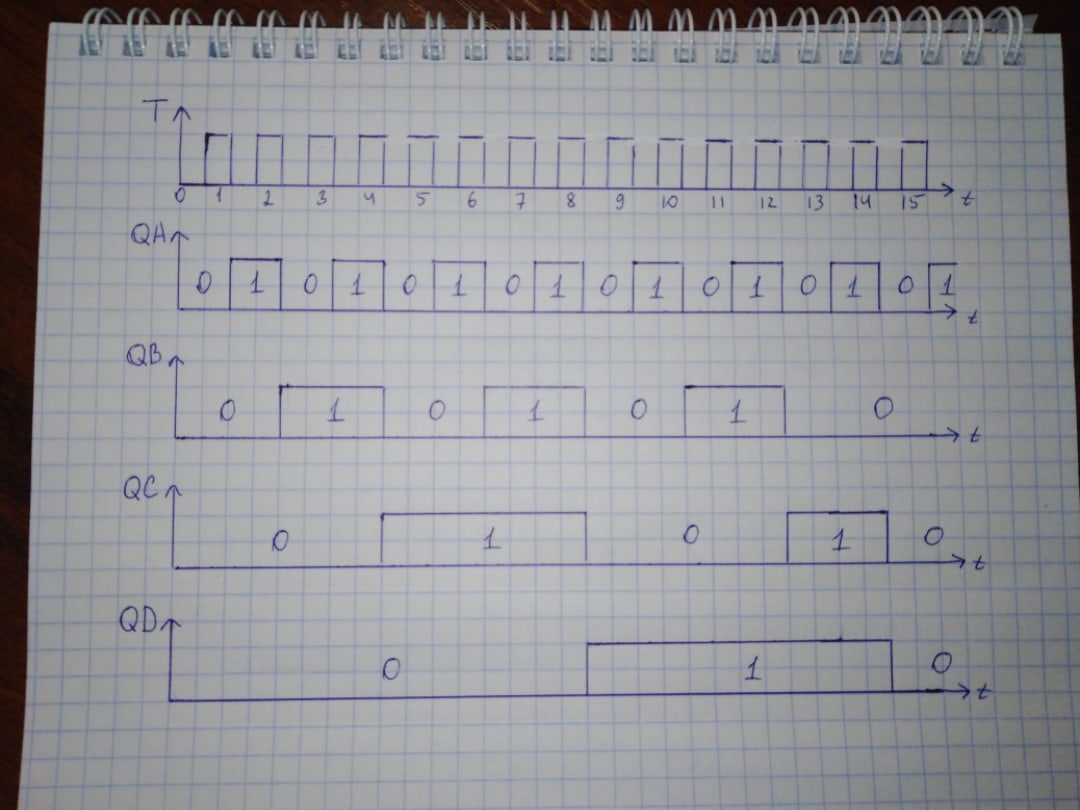 T
0 1 2 3 4 5 6 7 8 9 10 11 12 13 14 15 t
QA
0 1 0 1 0 1 0 1 0 1 0 1 0 1 0 1
t
QB
0 1 0 1 0 1 0
t
QC
0 1 0 1 0
t
QD
0 1 0
t